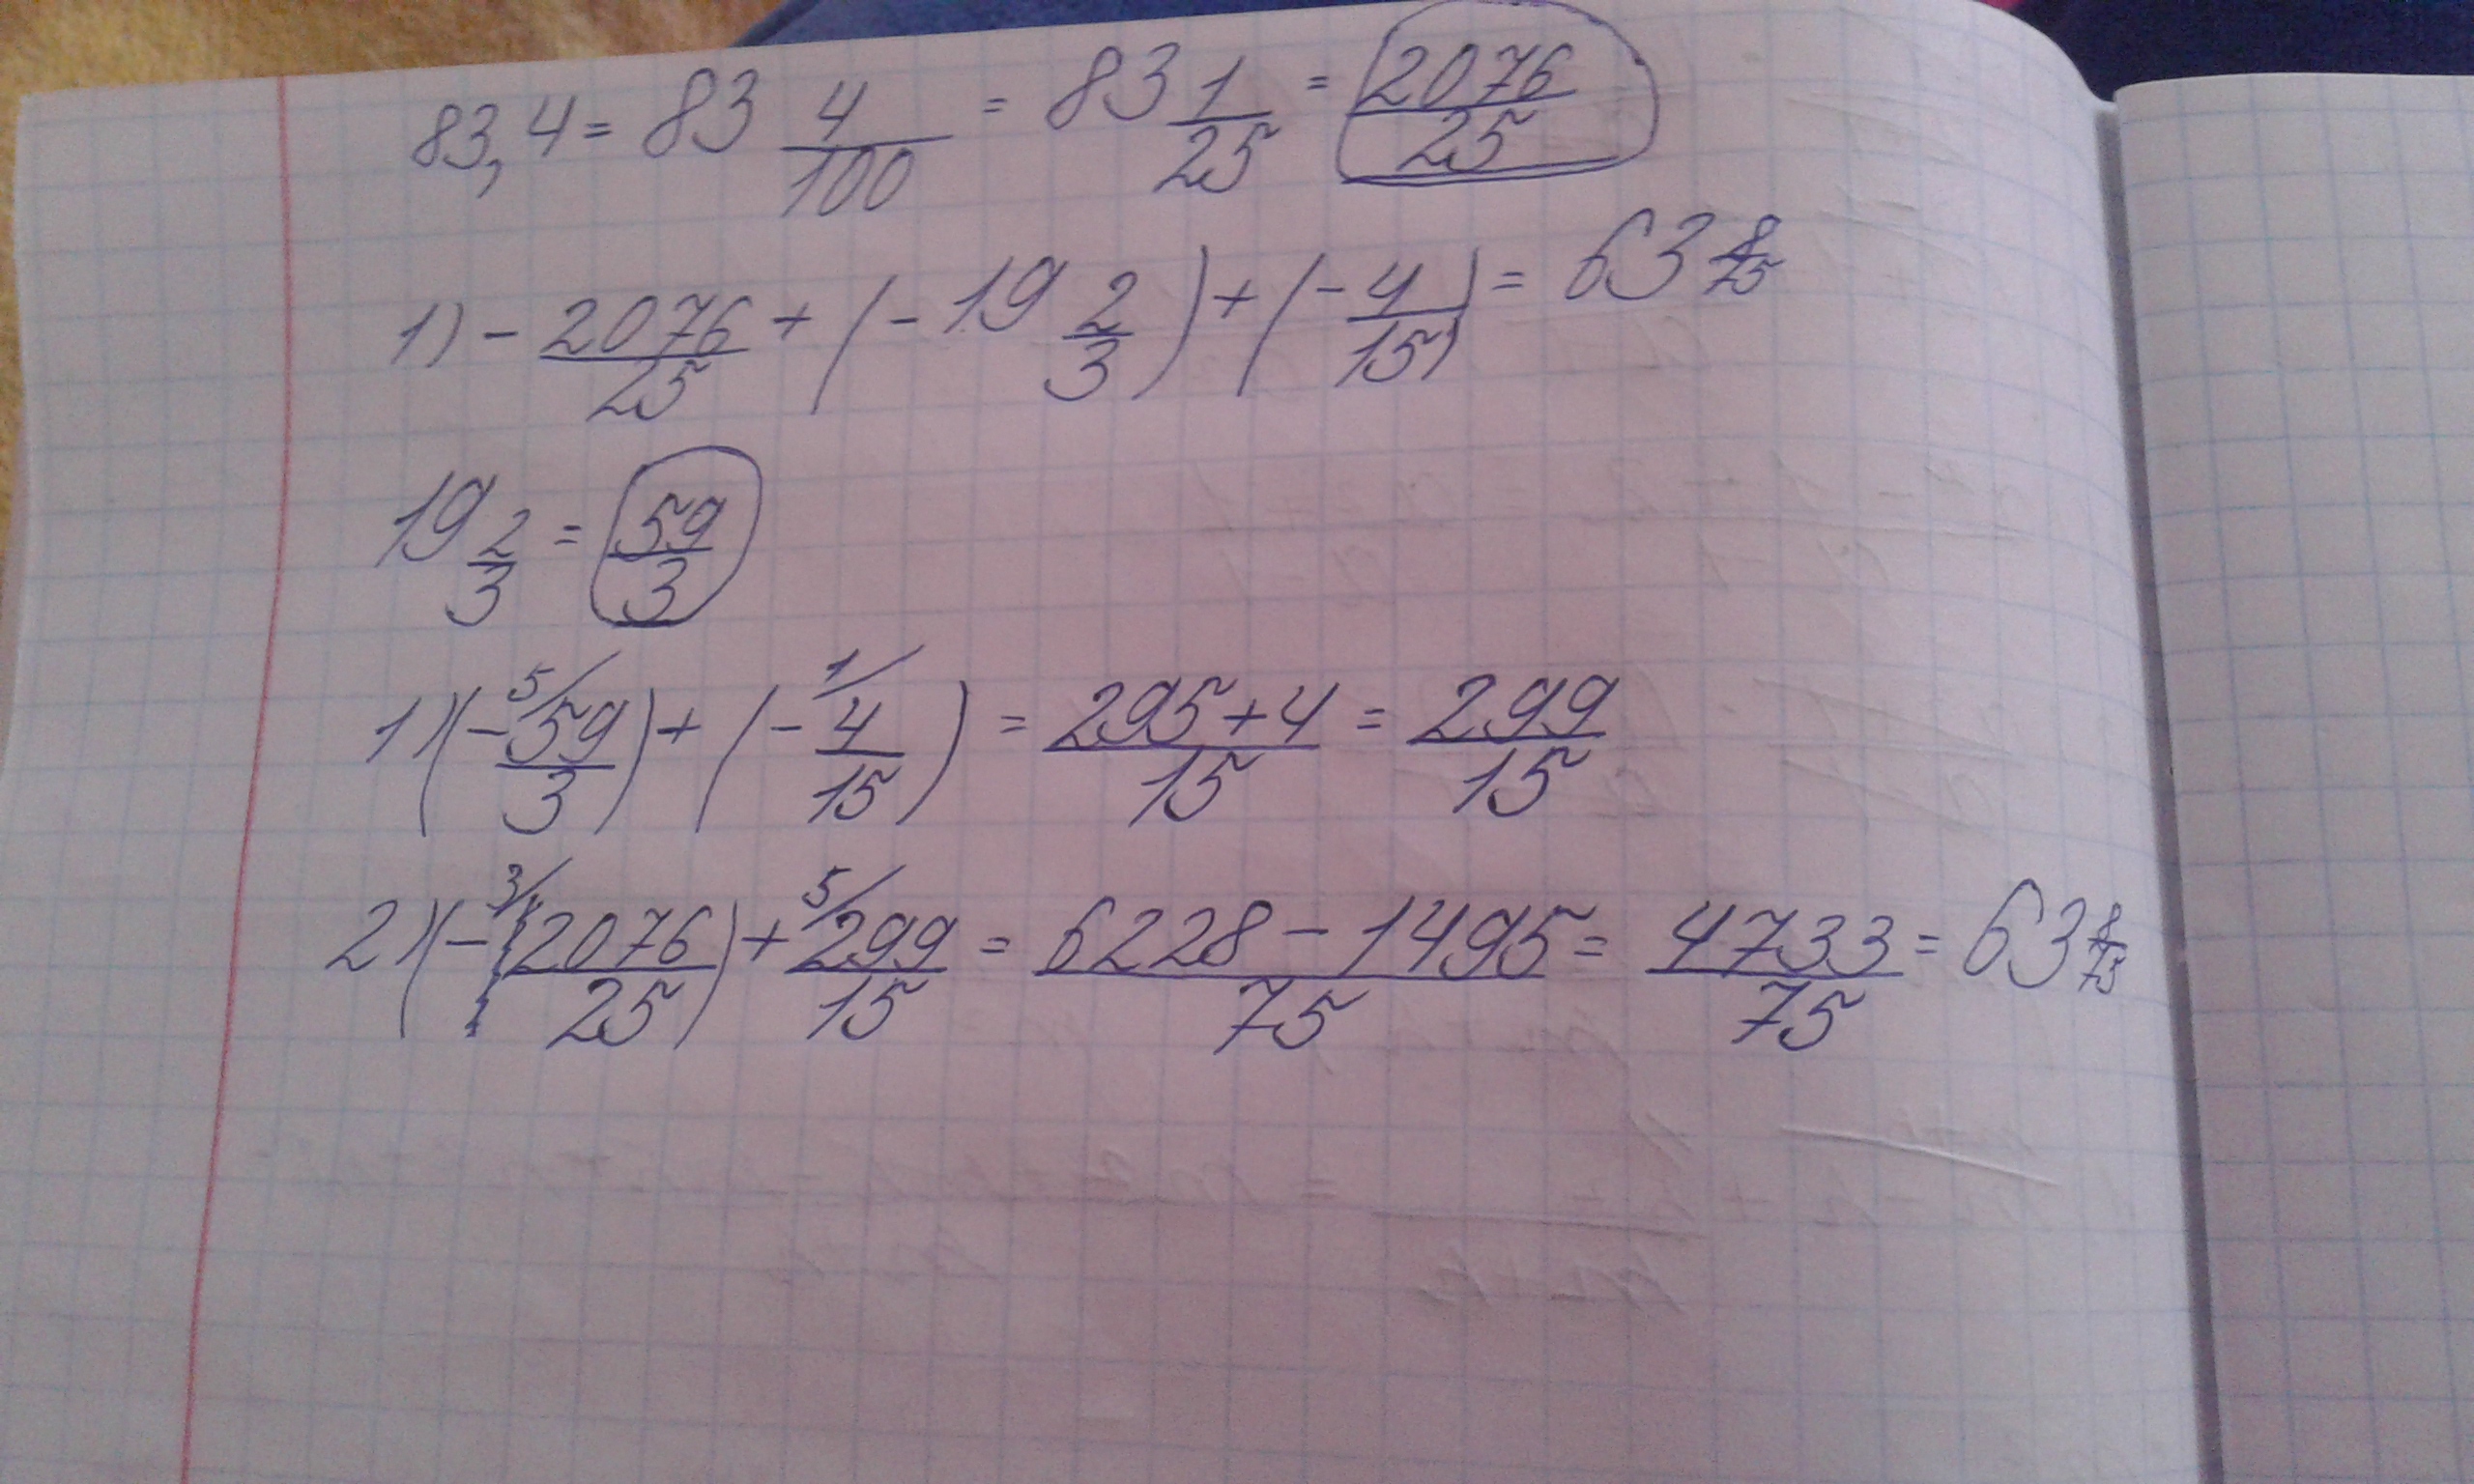 83,4 = 83 4/100 = 83 1/25 = 2076/25
1) - 2076/25 + (- 19 2/3) + (- 4/15) = 63 8/75
19 2/3 = 59/3
1) (- 59/3) 5/ + (- 4/15) 1/ = 295+4/15 = 299/15
2) (- 2076/25) 3/ + 299/15 5/ = 6228 - 1495/75 = 4733/75 = 63 8/75